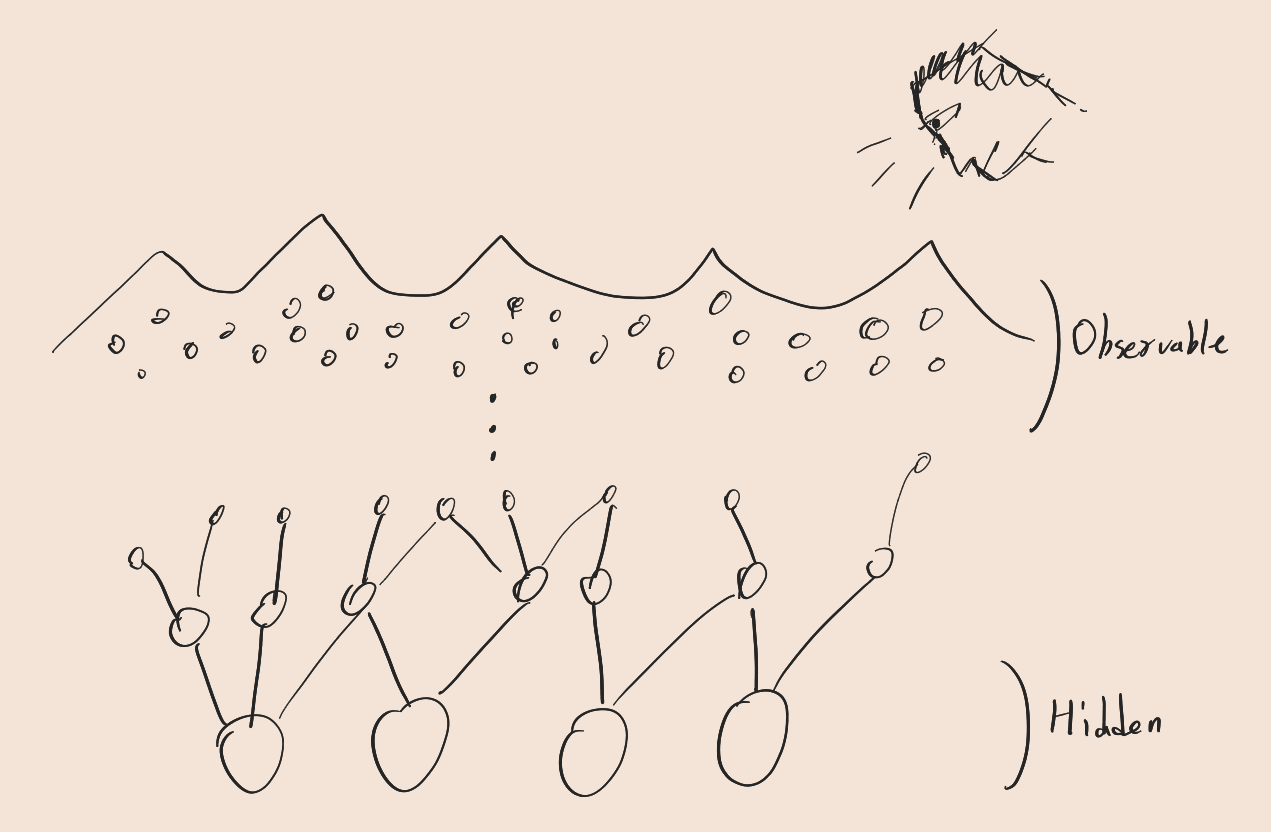 Observable
Hidden